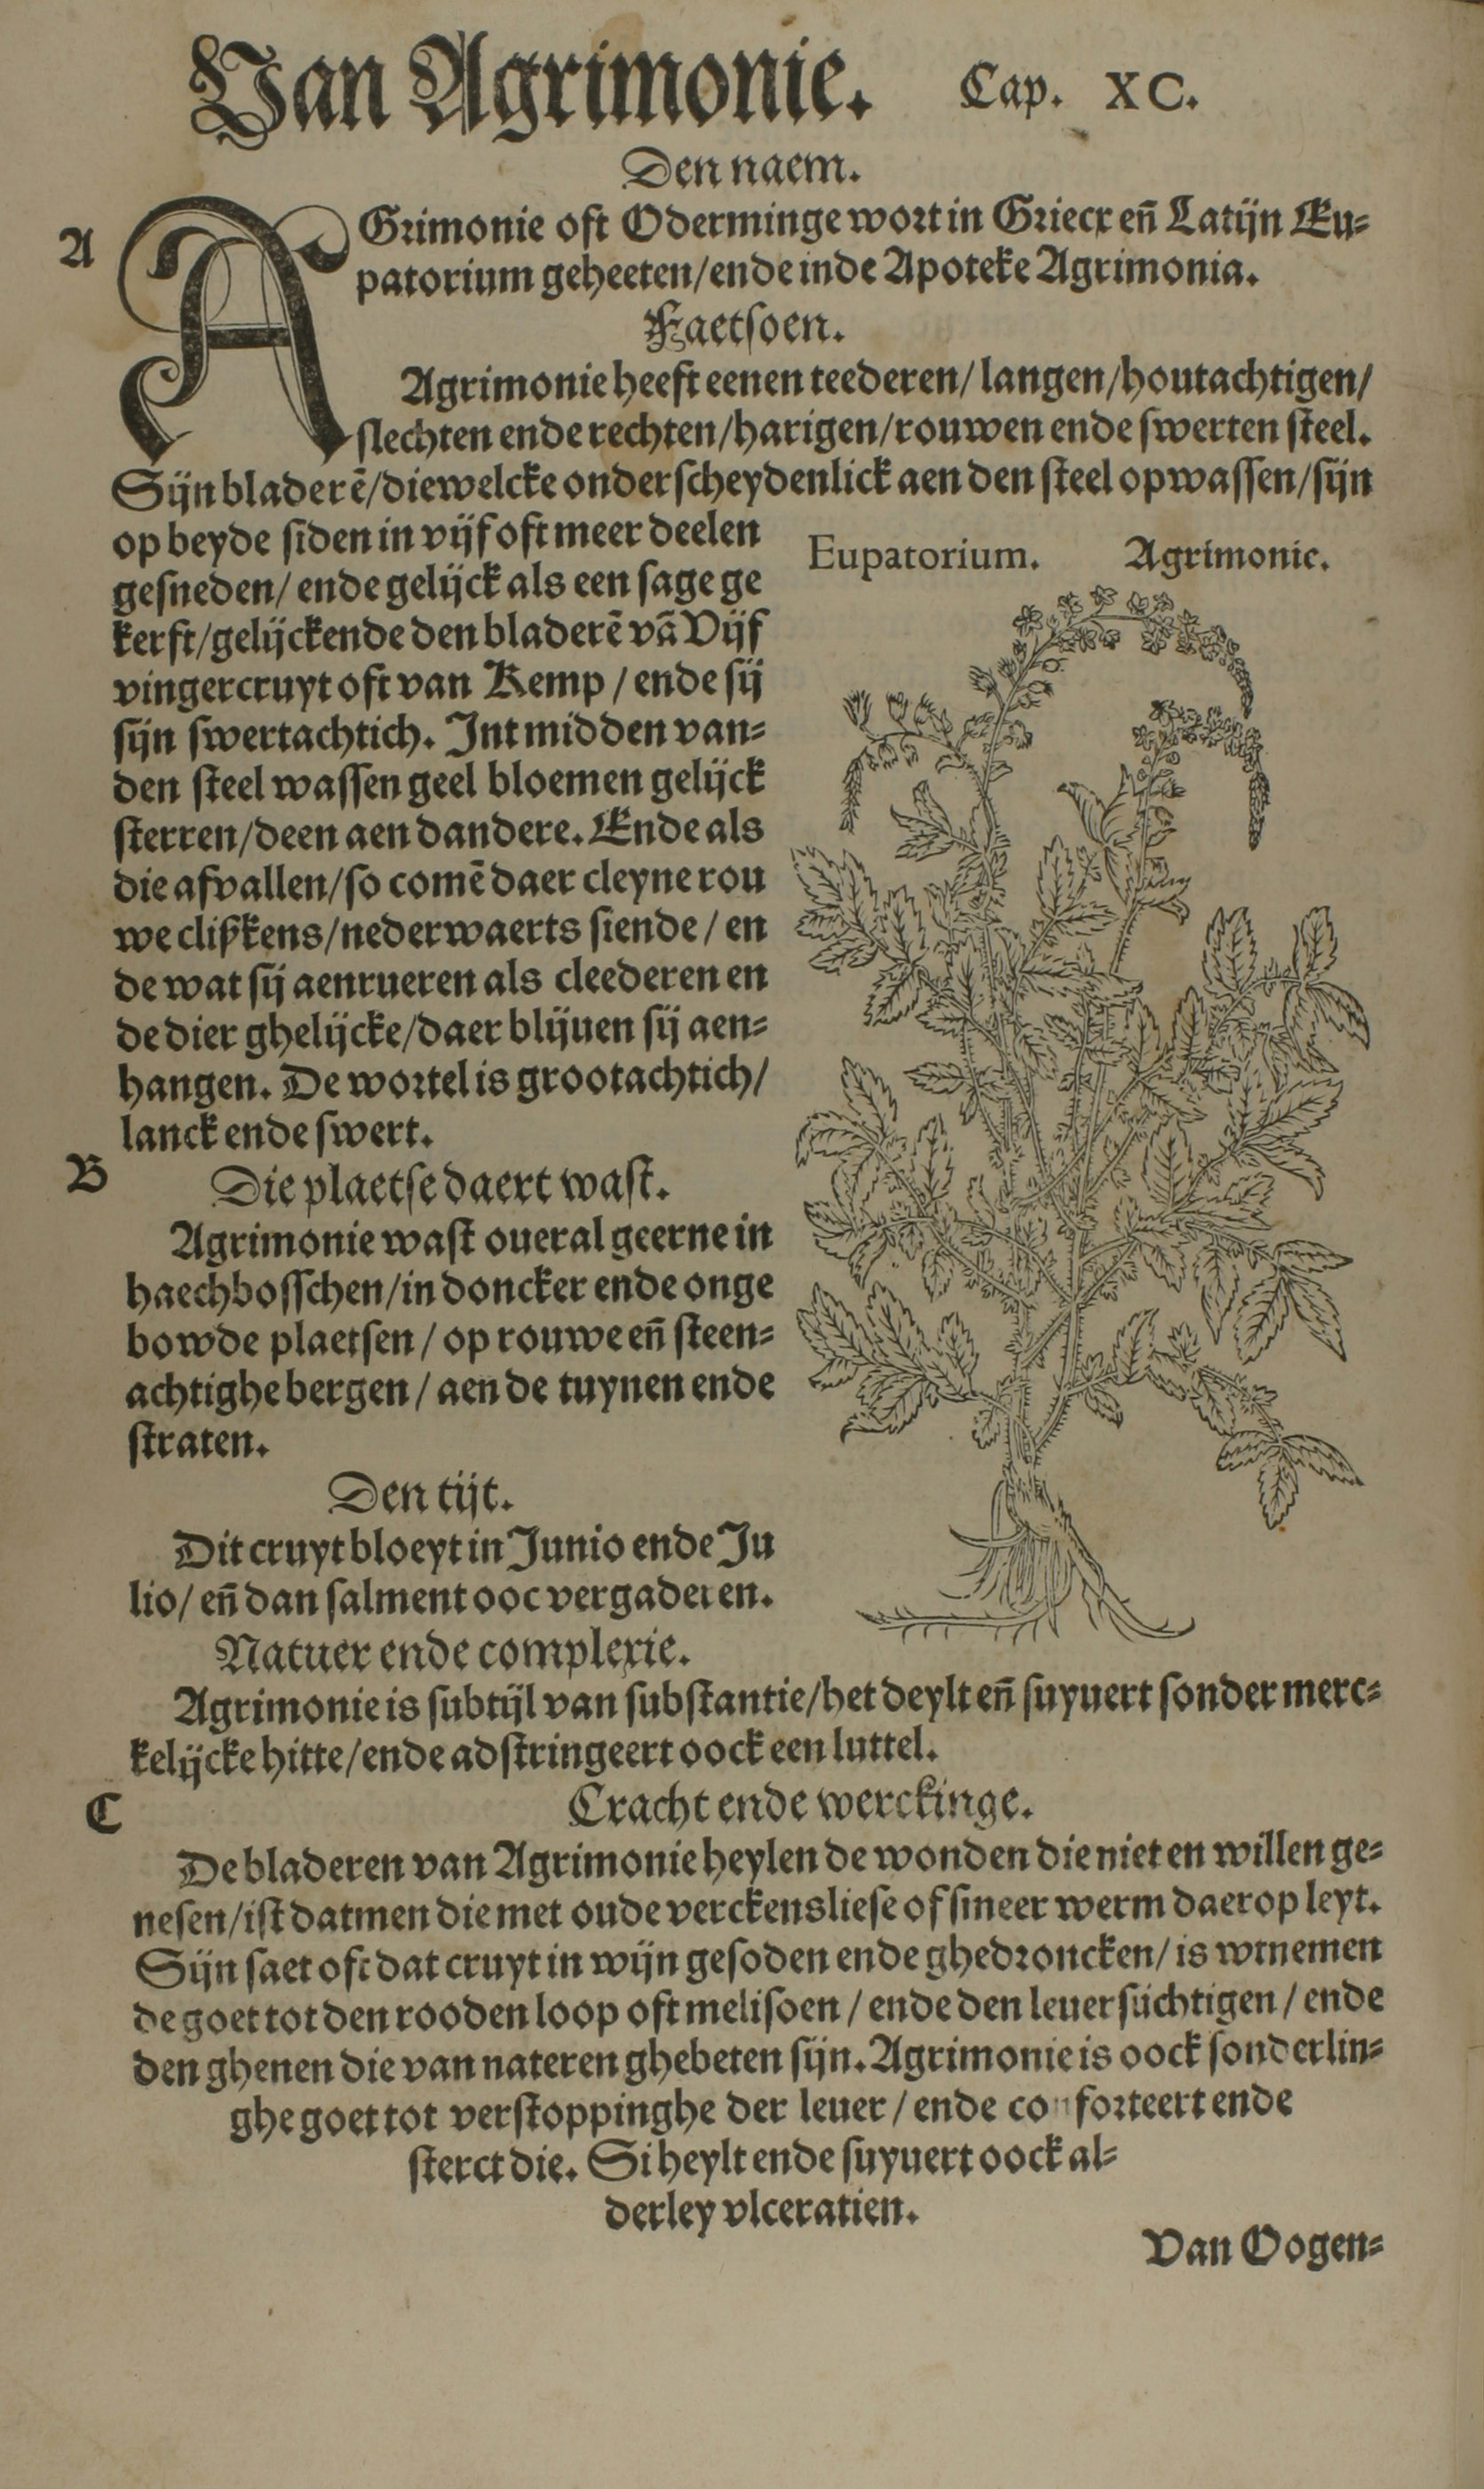 Van Agrimonie. Cap. XC.
Den naem.
A
AGrimonie oft Oderminge wort in Griecx en̄ Latijn Eu-
patorium geheeten/ende inde Apoteke Agrimonia.
Faetsoen.
Agrimonie heeft eenen teederen/langen/houtachtigen/
slechten ende rechten/harigen/rouwen ende swerten steel.
Sijn bladerē/diewelcke onderscheydenlick aen den steel opwassen/sijn
op beyde siden in vijf oft meer deelen
gesneden/ende gelijck als een sage ge
kerft/gelijckende den bladerē vā Vijf
vingercruyt oft van Kemp/ende sij
sijn swertachtich. Int midden van-
den steel wassen geel bloemen gelijck
sterren/deen aen dandere. Ende als
die afvallen/so comē daer cleyne rou
we clißkens/nederwaerts siende/en
de wat sij aenrueren als cleederen en
de dier ghelijcke/daer blijuen sij aen-
hangen. De wortel is grootachtich/
lanck ende swert.
Eupatorium. Agrimonie.
B
Die plaetse daert wast.
Agrimonie wast oueral geerne in
haechbosschen/in doncker ende onge
bowde plaetsen/op rouwe en̄ steen-
achtighe bergen/aen de tuynen ende
straten.
Den tijt.
Dit cruyt bloeyt in Junio ende Ju
lio/en̄ dan salment ooc vergaderen.
Natuer ende complexie.
Agrimonie is subtijl van substantie/het deylt en̄ suyuert sonder merc-
kelijcke hitte/ende adstringeert oock een luttel.
C
Cracht ende werckinge.
De bladeren van Agrimonie heylen de wonden die niet en willen ge-
nesen/ist datmen die met oude verckensliese of smeer werm daer op leyt.
Sijn saet oft dat cruyt in wijn gesoden ende ghedroncken/is wtnemen
de goet tot den rooden loop oft melisoen/ende den leuersüchtigen/ende
den ghenen die van nateren ghebeten sijn. Agrimonie is oock sonderlin-
ghe goet tot verstoppinghe der leuer/ende conforteert ende
sterct die. Si heylt ende suyuert oock al-
derley vlceratien.
Van Oogen-